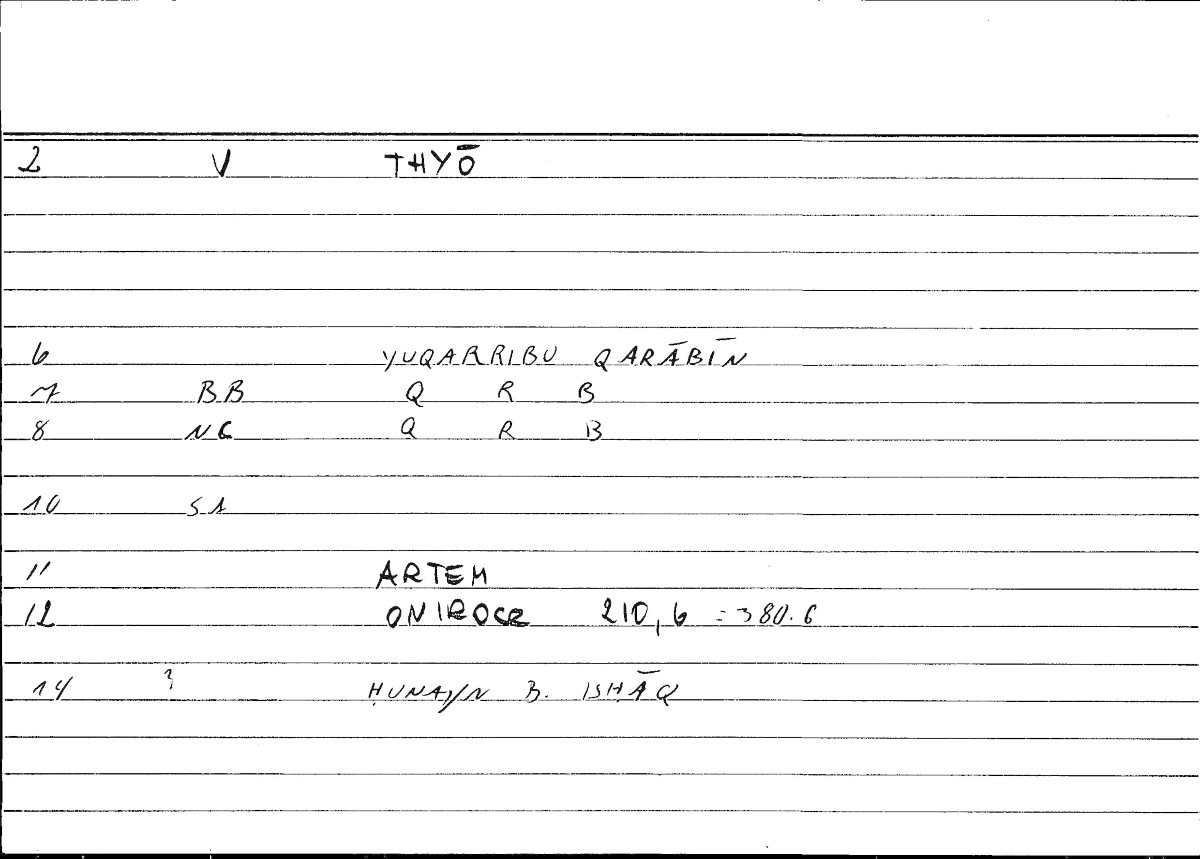 2 V THYŌ
6 YUQARRIBU QARĀBĪN
7 BB Q R B
8 NC Q R B
10 SA
11 ARTEM
12 ONIROCR 210,6 = 380.6
14 ? ḤUNAYN B. ISḤĀQ